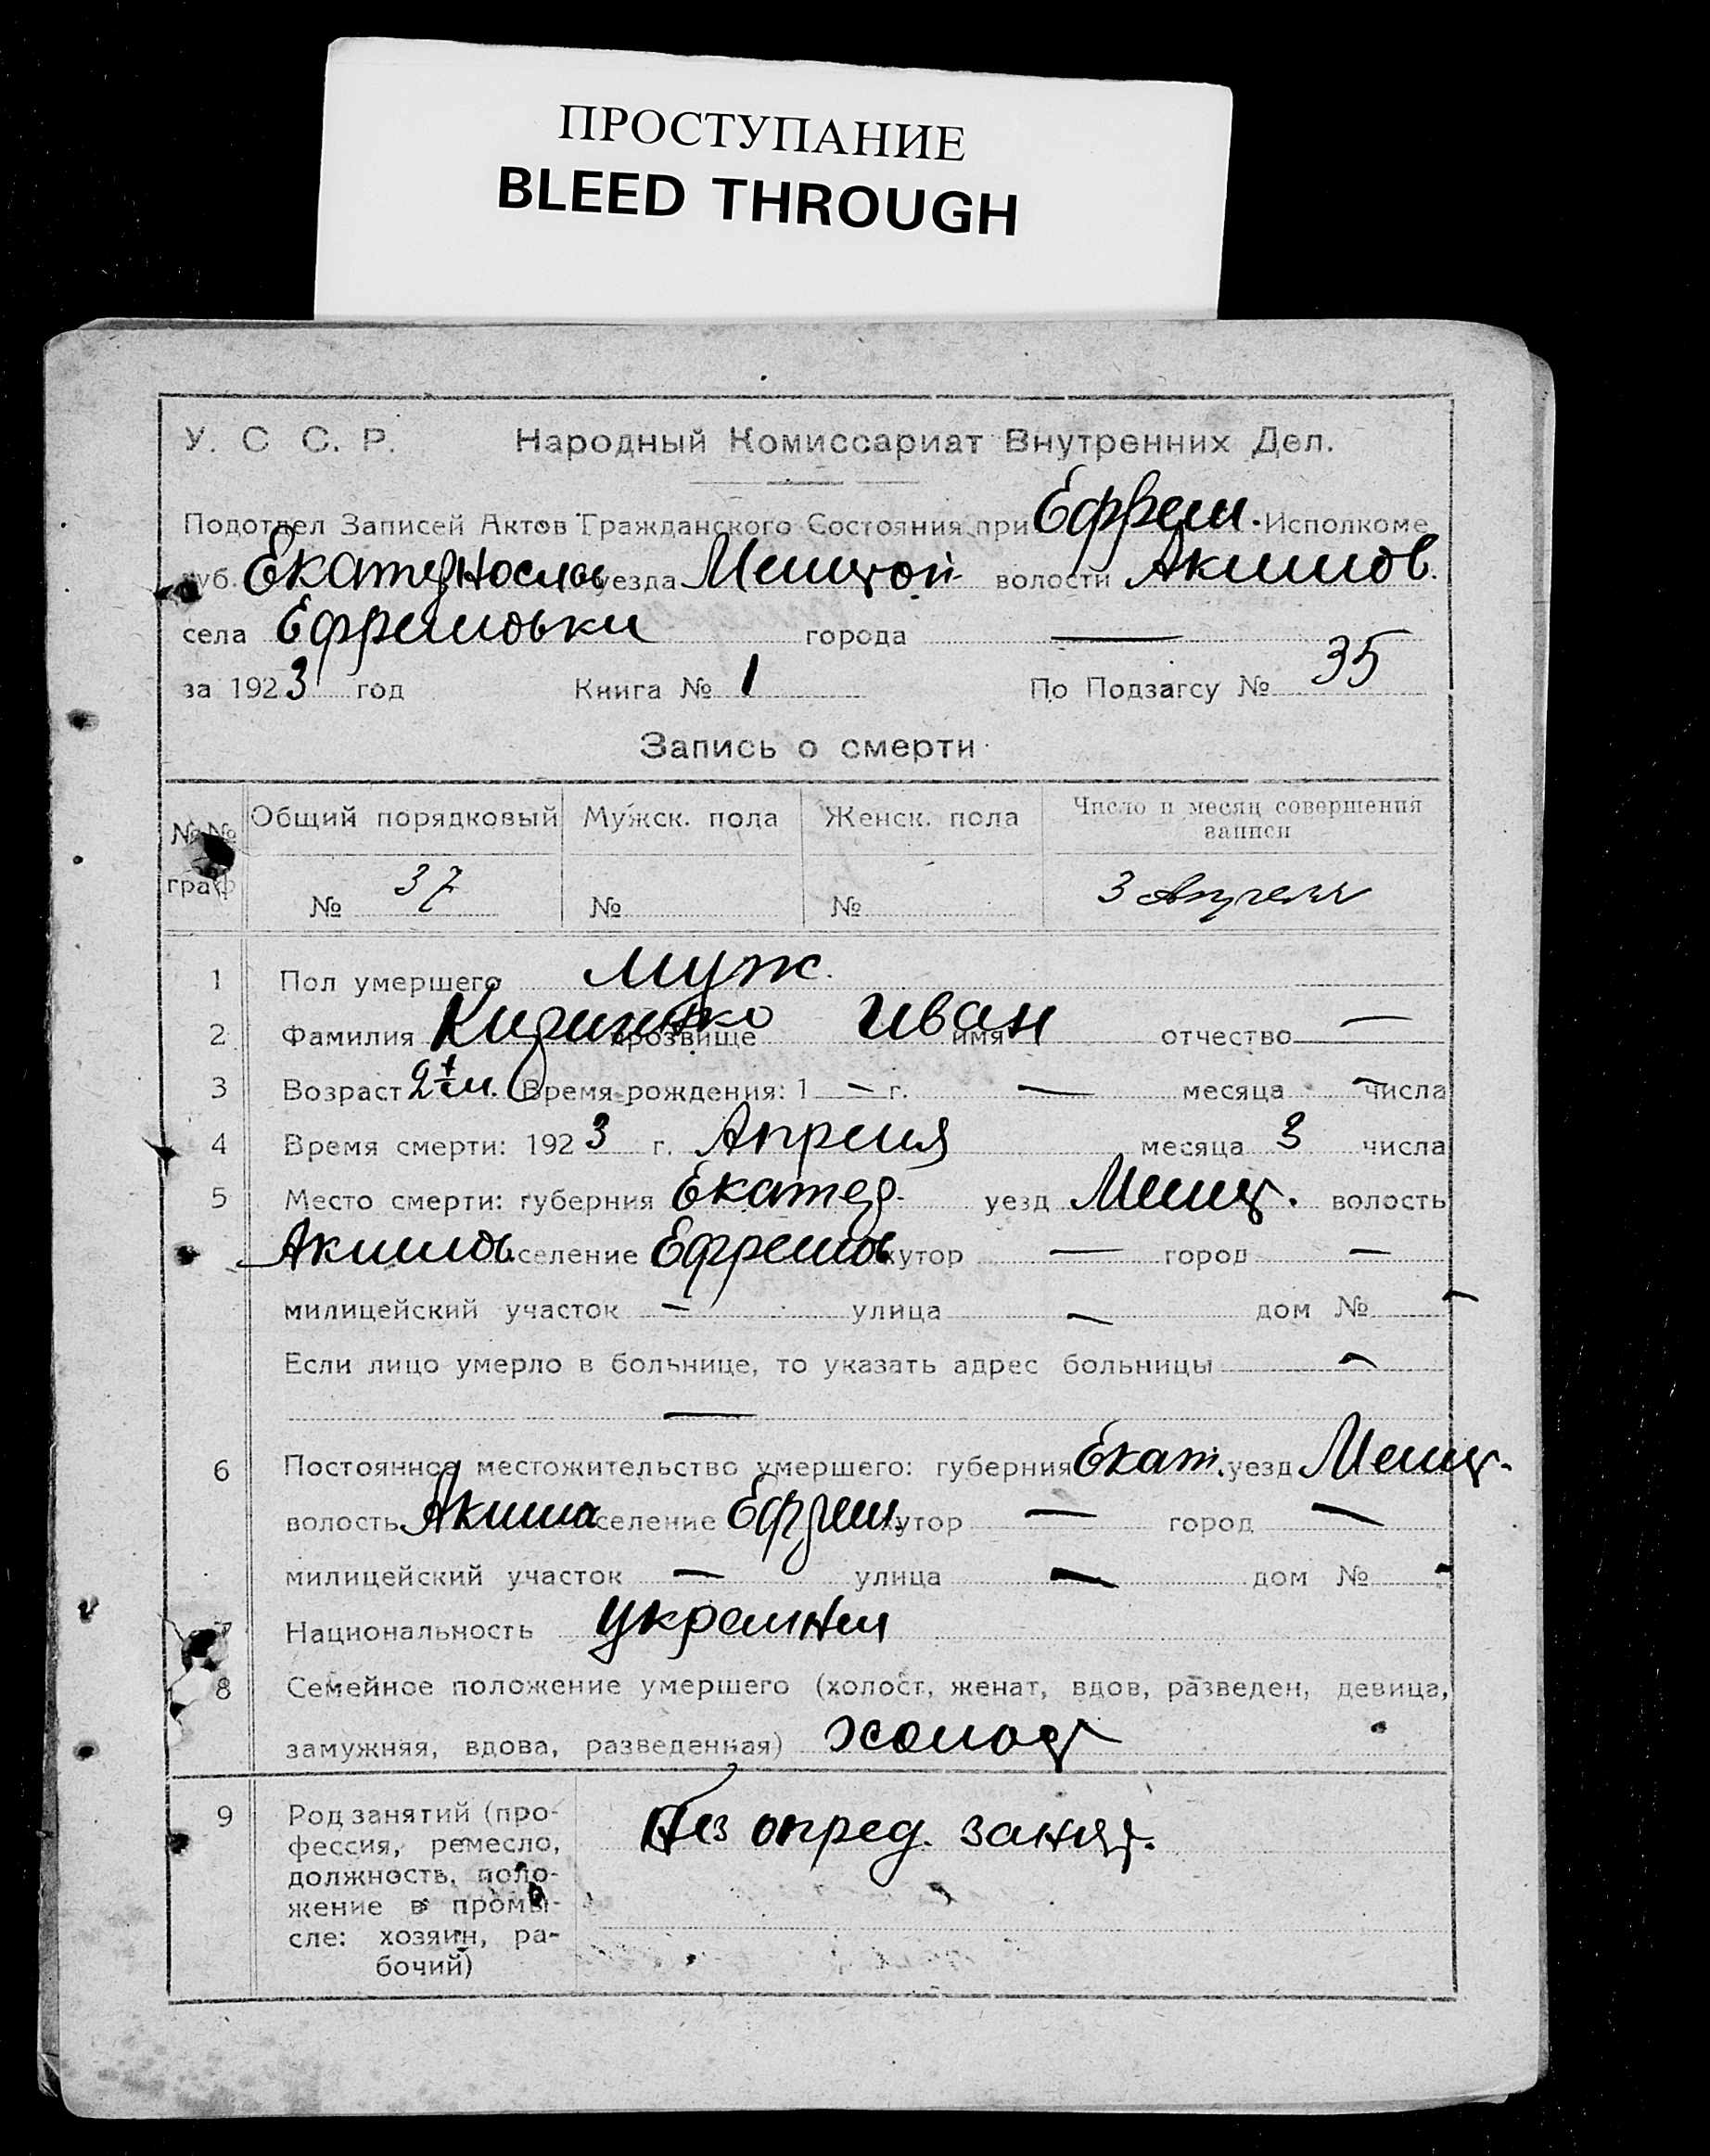 ПРОСТУПАНИЕ
BLEED THROUGH
У. С С. Р. Народный Комиссариат Внутренних Дел.
Подотдел Записей Актов Гражданского Состояния при Ефрем. Исполкоме
губ. уезда волости Акимов.
села Ефремовки города —
за 1923 год Книга № 1 По Подзагсу № 35
Запись о смерти
№№ граф Общий порядковый Мужск. пола Женск. пола Число и месяц совершения записи
№ 37 № № 3 Апреля
1 Пол умершего муж.
2 Фамилия прозвище Иван имя отчество —
3 Возраст Время рождения: 1 — г. — месяца — числа
4 Время смерти: 1923 г. Апреля месяца 3 числа
5 Место смерти: губерния Екатер. уезд Мелит. волость
Акимов. селение Ефремов хутор — город —
милицейский участок — улица — дом № —
Если лицо умерло в больнице, то указать адрес больницы —
—
6 Постоянное местожительство умершего: губерния Екат. уезд Мелит.
волость Акима селение Ефрем. хутор — город —
милицейский участок — улица — дом № -
7 Национальность
8 Семейное положение умершего (холост, женат, вдов, разведен, девица,
замужняя, вдова, разведенная) холост
9 Род занятий (про-
фессия, ремесло,
должность, поло-
жение в промы-
сле: хозяин, ра-
бочий)
Без опред. занят.